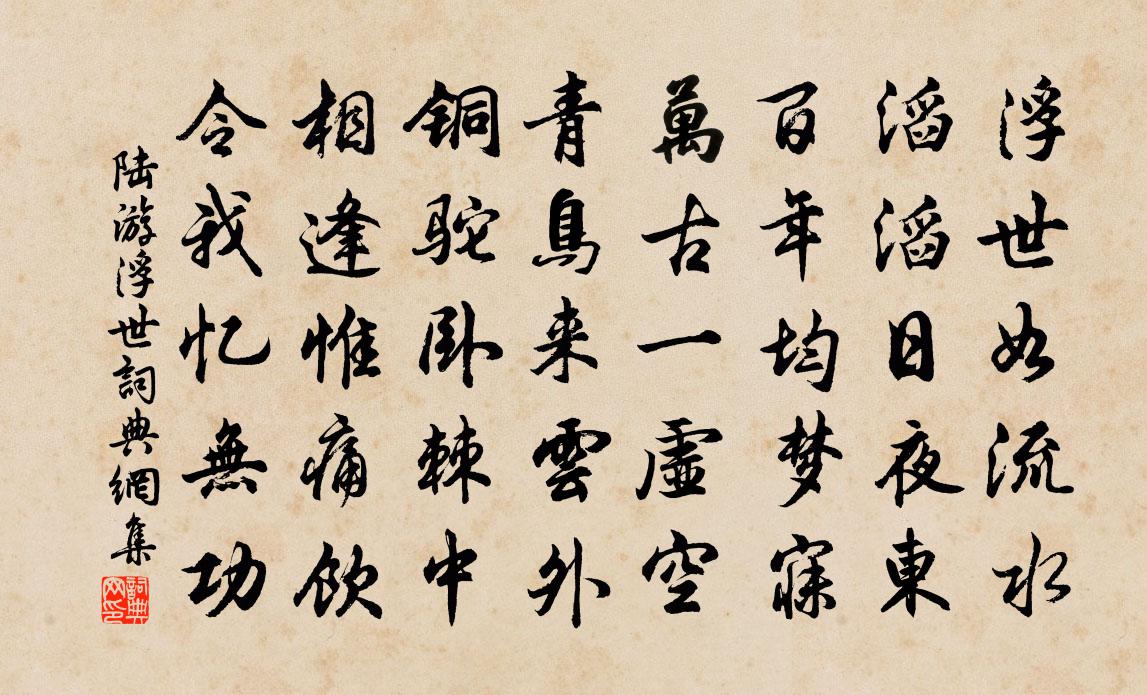 浮世如流水
滔滔日夜東
百年均梦寐
萬古一虛空
青鳥来雲外
铜驼卧棘中
相逢惟痛飲
令我忆無功
陆游浮世詞典網集
詞典網印